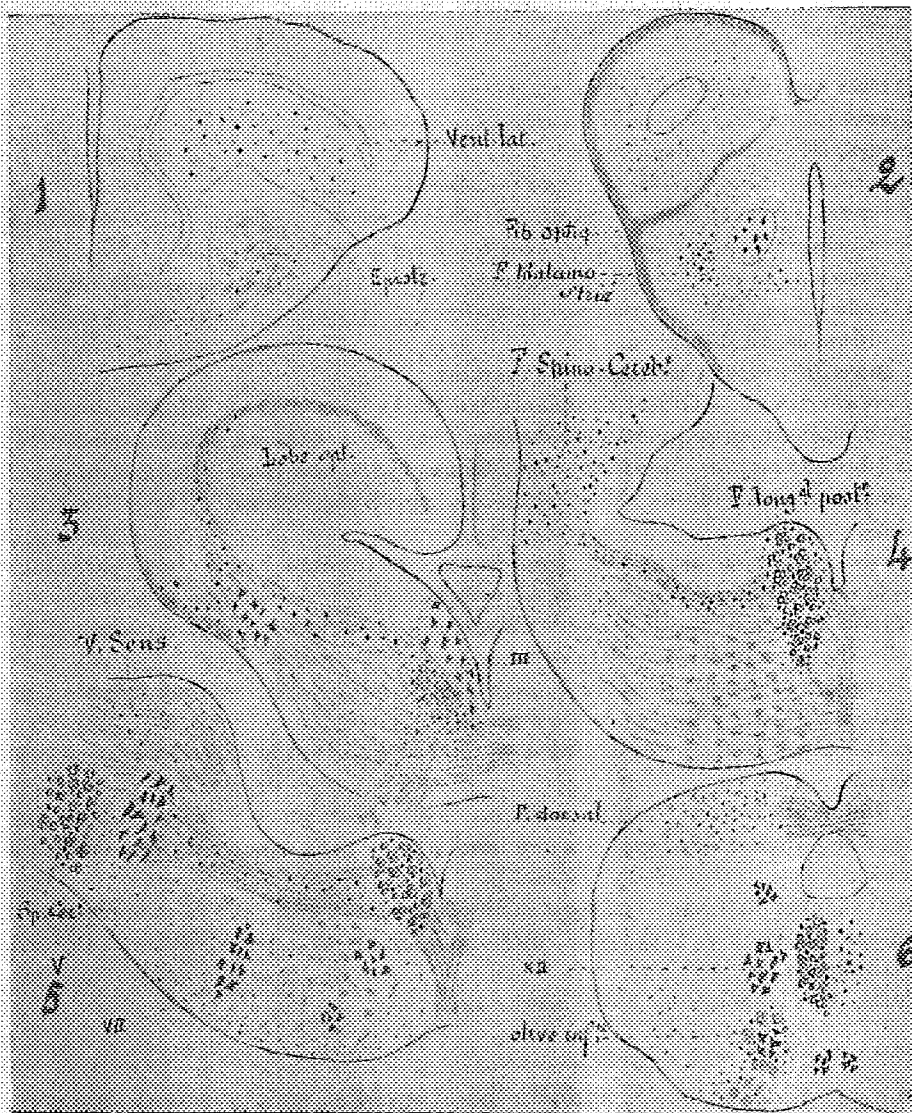 1
Vent. lat.
2
Fib. optiq.
F. thalamo-
strié
F. Spino-Cerebˡ
Lobe opt.
F. longᵈ postʳ
3
4
V. Sens
III
F. dorsal
V
5
VII
XII
olive infʳᵉ
6